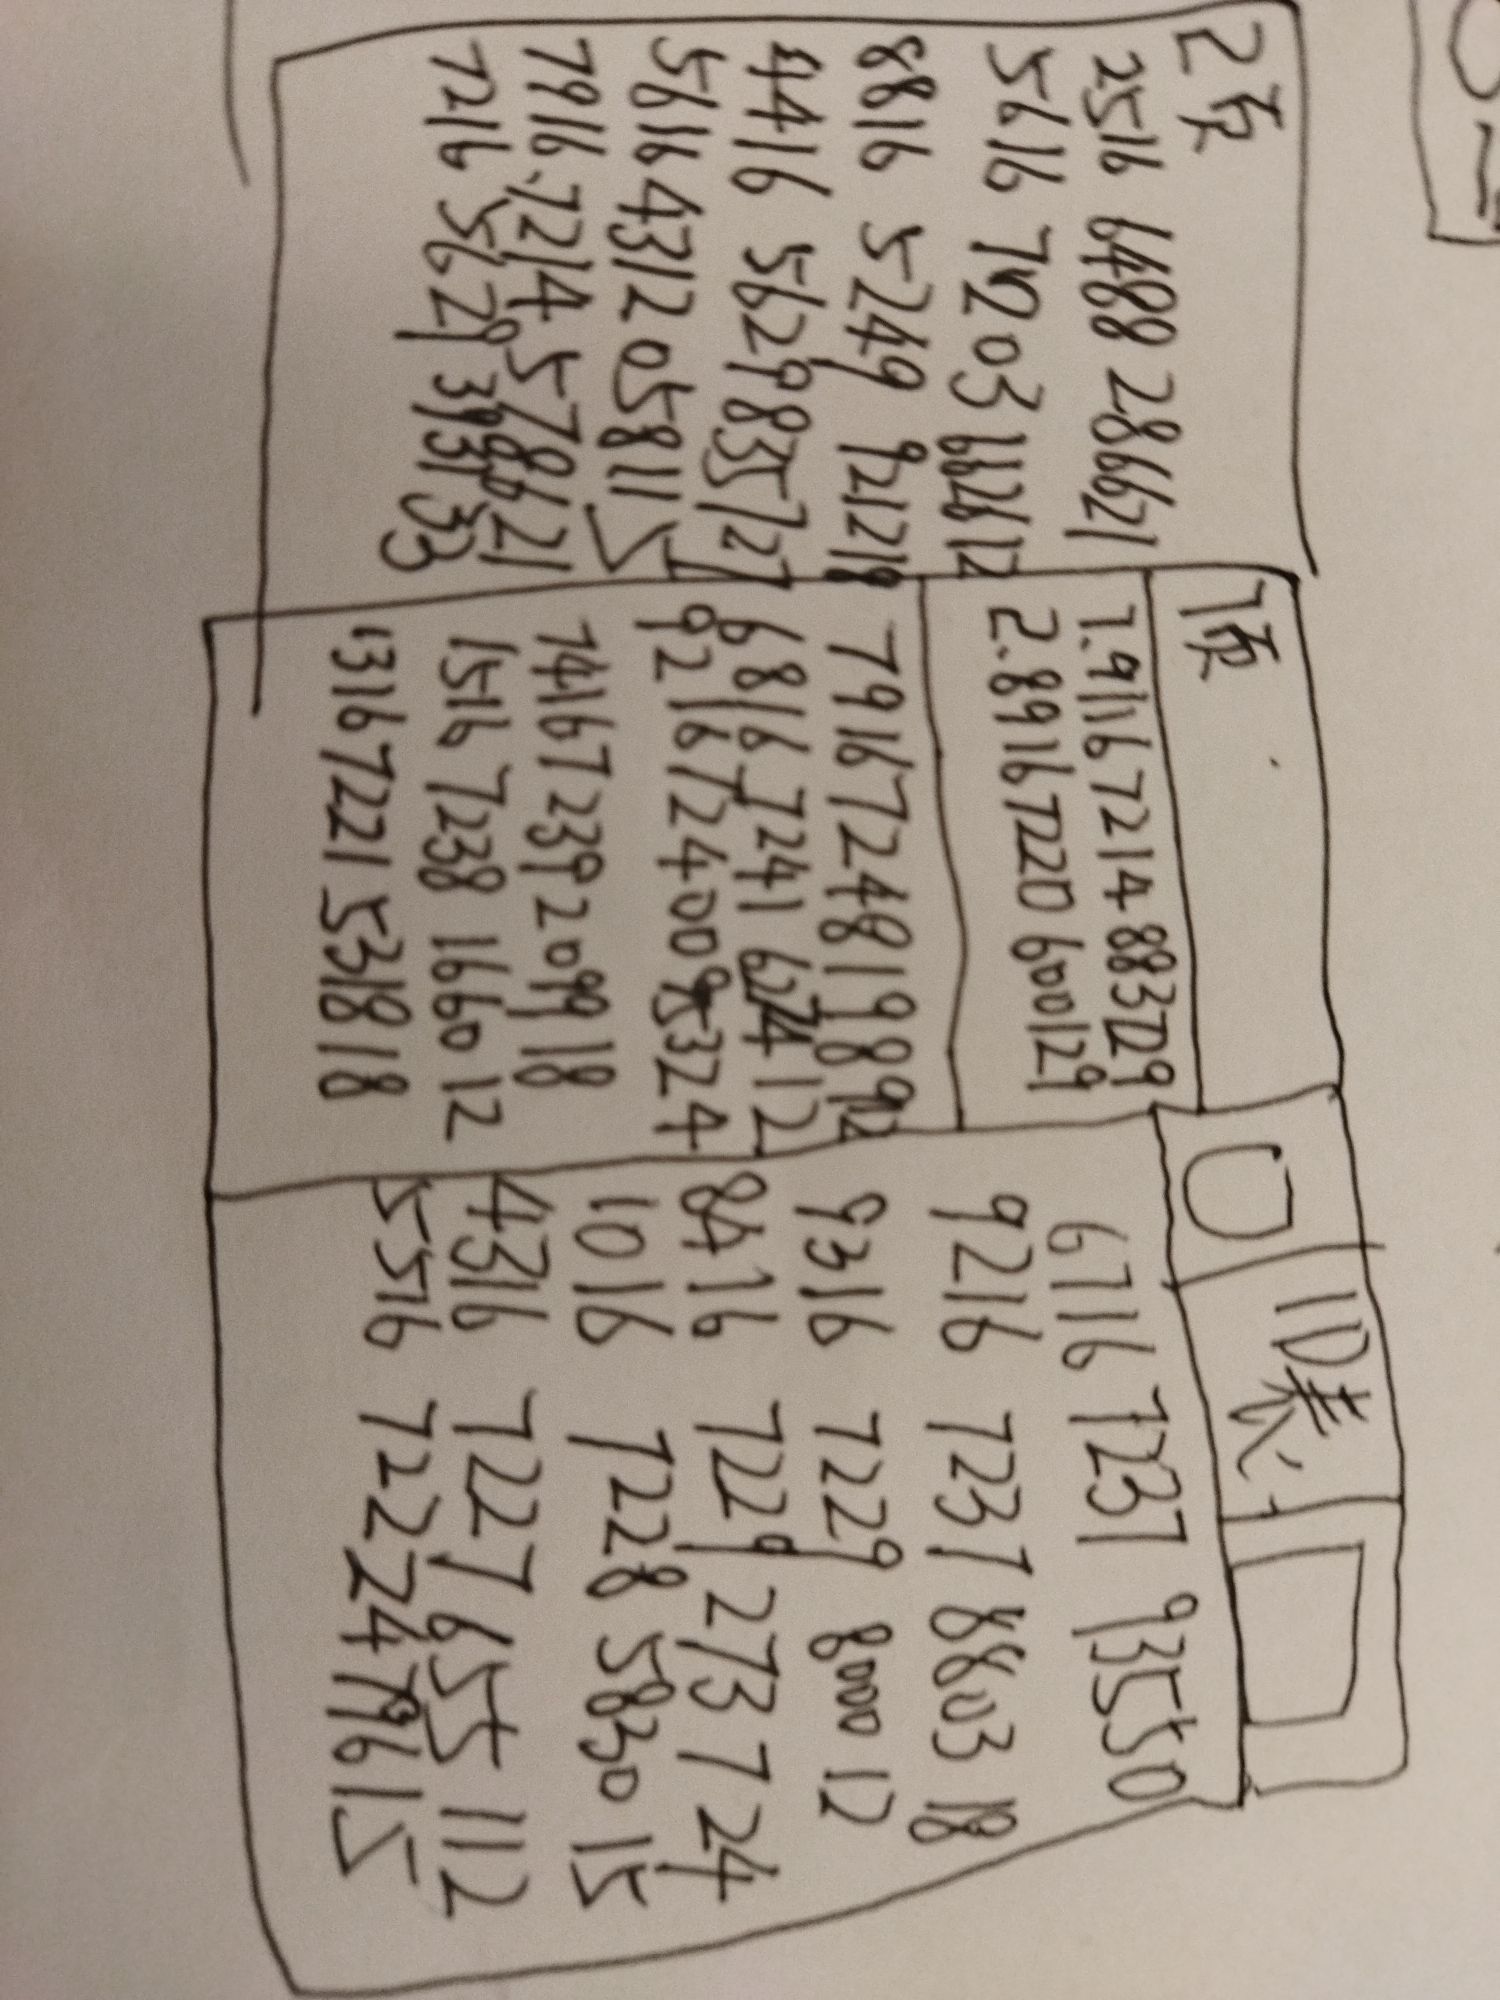 2页
2516 6488 286621
5616
8816 5249 921218
4416 5629835727
5616 4312 05811
7916.7214 578621
7216 5629 393133
1页
1.9116 7214 883729
2.8916 7220 600129
7916 7248198912
6816 7241 627412
9216 72400
7416 7239 2099 18
1516 7238 1660 12
1316 7221 5318 18
ID表
6716 7237 93550
9216 7237 8803 18
9316 7229 8000 12
8416 7229 2737 24
1016 7228 5830 15
4316 7227 655 112
5516 7224